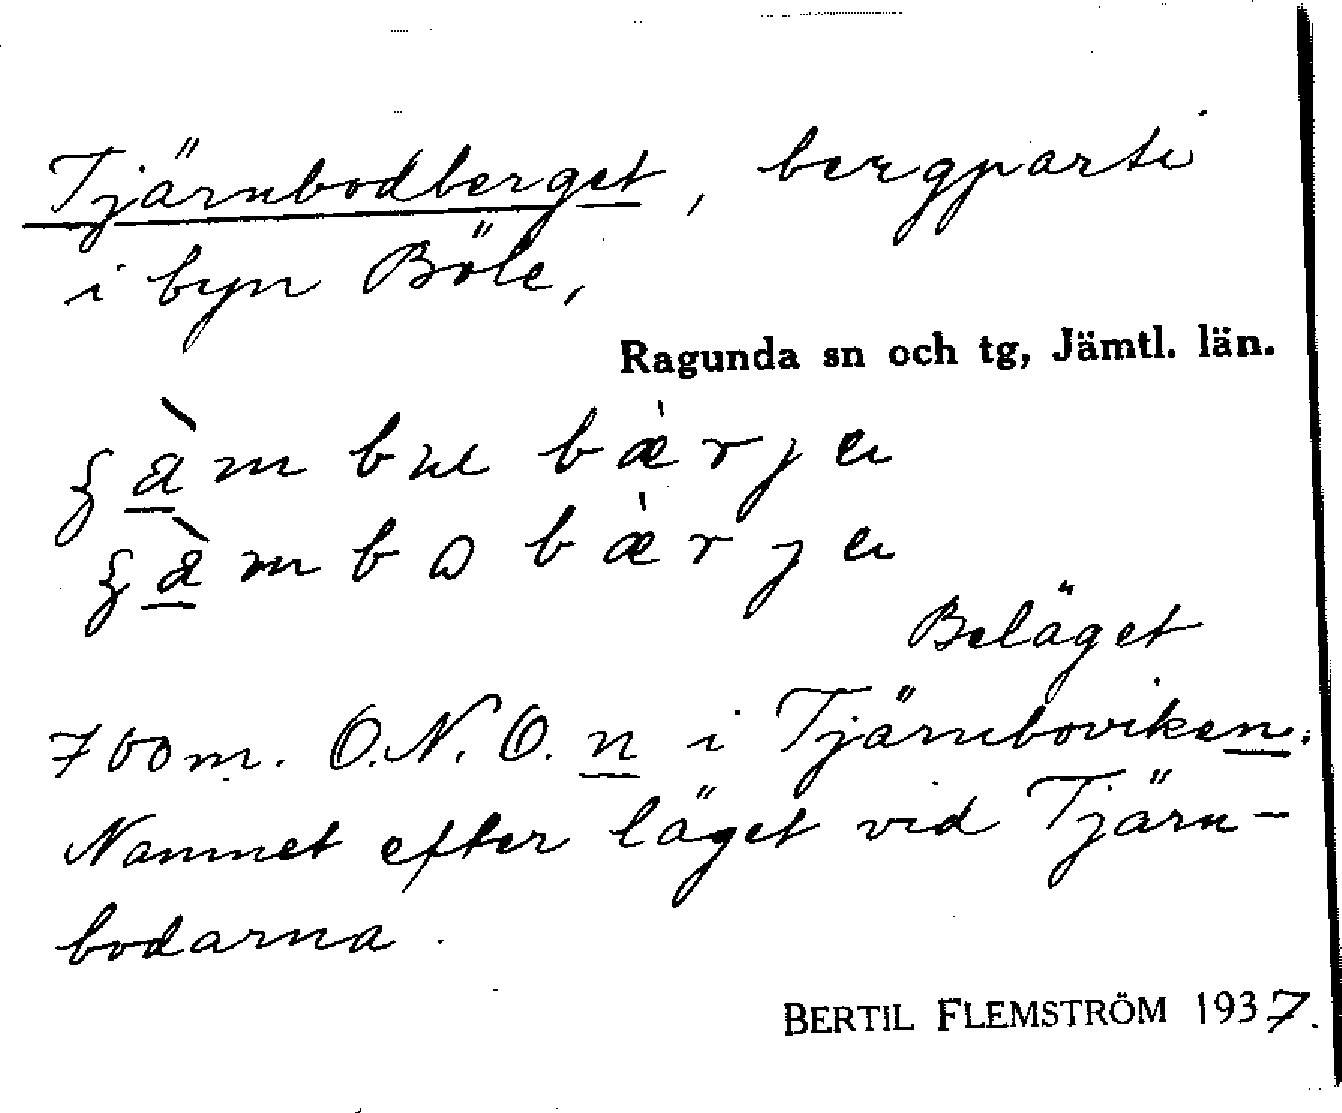 Tjärnbodberget, bergparti
i byn Böle,
Ragunda sn och tg, Jämtl. län.
Beläget
700 m. O.N.O. n i Tjärnboviken.
Namnet efter läget vid Tjärn-
bodarna.
BERTIL FLEMSTRÖM 1937.